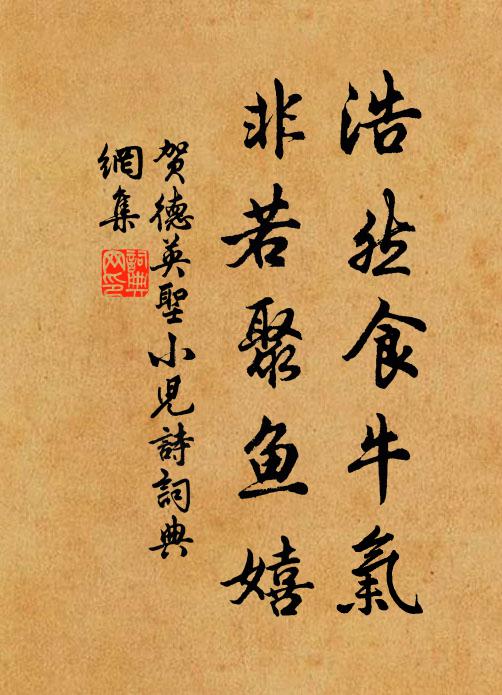 浩然食牛氣
非若聚鱼嬉
賀德英聖小児詩詞典
網集
詞典网印